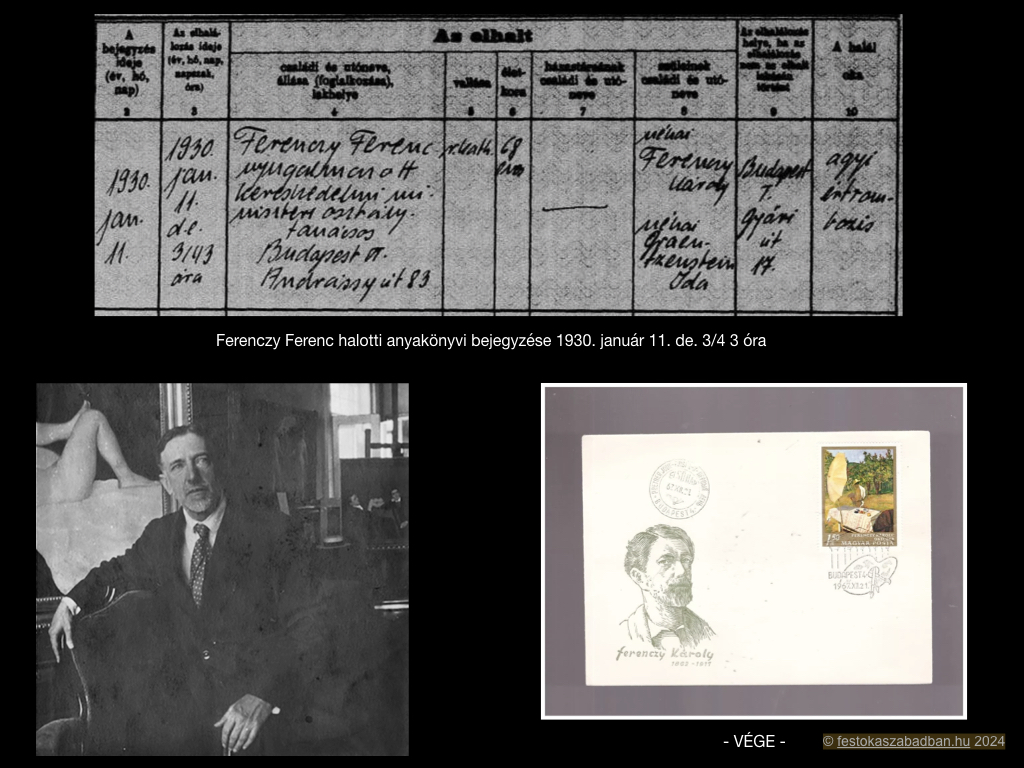 Az elhalt
A
bejegyzés
ideje
(év, hó,
nap)
2
Az elhalá-
lozás ideje
(év, hó, nap,
napszak,
óra)
3
családi és utóneve,
állása (foglalkozása),
lakhelye
4
vallása
5
élet-
kora
6
házastársának
családi és utó-
neve
7
szüleinek
családi és utó-
neve
8
Az elhalálozás
helye, ha az
elhalálozás
nem az elhalt
lakásán
történt
9
A halál
oka
10
1930.
jan.
11.
1930.
jan.
11.
d.e.
3/43
óra
Ferenczy Ferenc
nyugalmazott
kereskedelmi mi-
niszteri osztály-
tanácsos
Budapest
Andrássy út 83
r. kath.
68
éves
néhai
Ferenczy
Károly
néhai
Graen-
zenstein
Ida
Budapest
I.
Győri
út
17.
agyi
értrom-
bozis
Ferenczy Ferenc halotti anyakönyvi bejegyzése 1930. január 11. de. 3/4 3 óra
BUDAPEST
MAGYAR POSTA
BUDAPEST 4
ferenczy Károly
1862-1917
- VÉGE -
© festokaszabadban.hu 2024